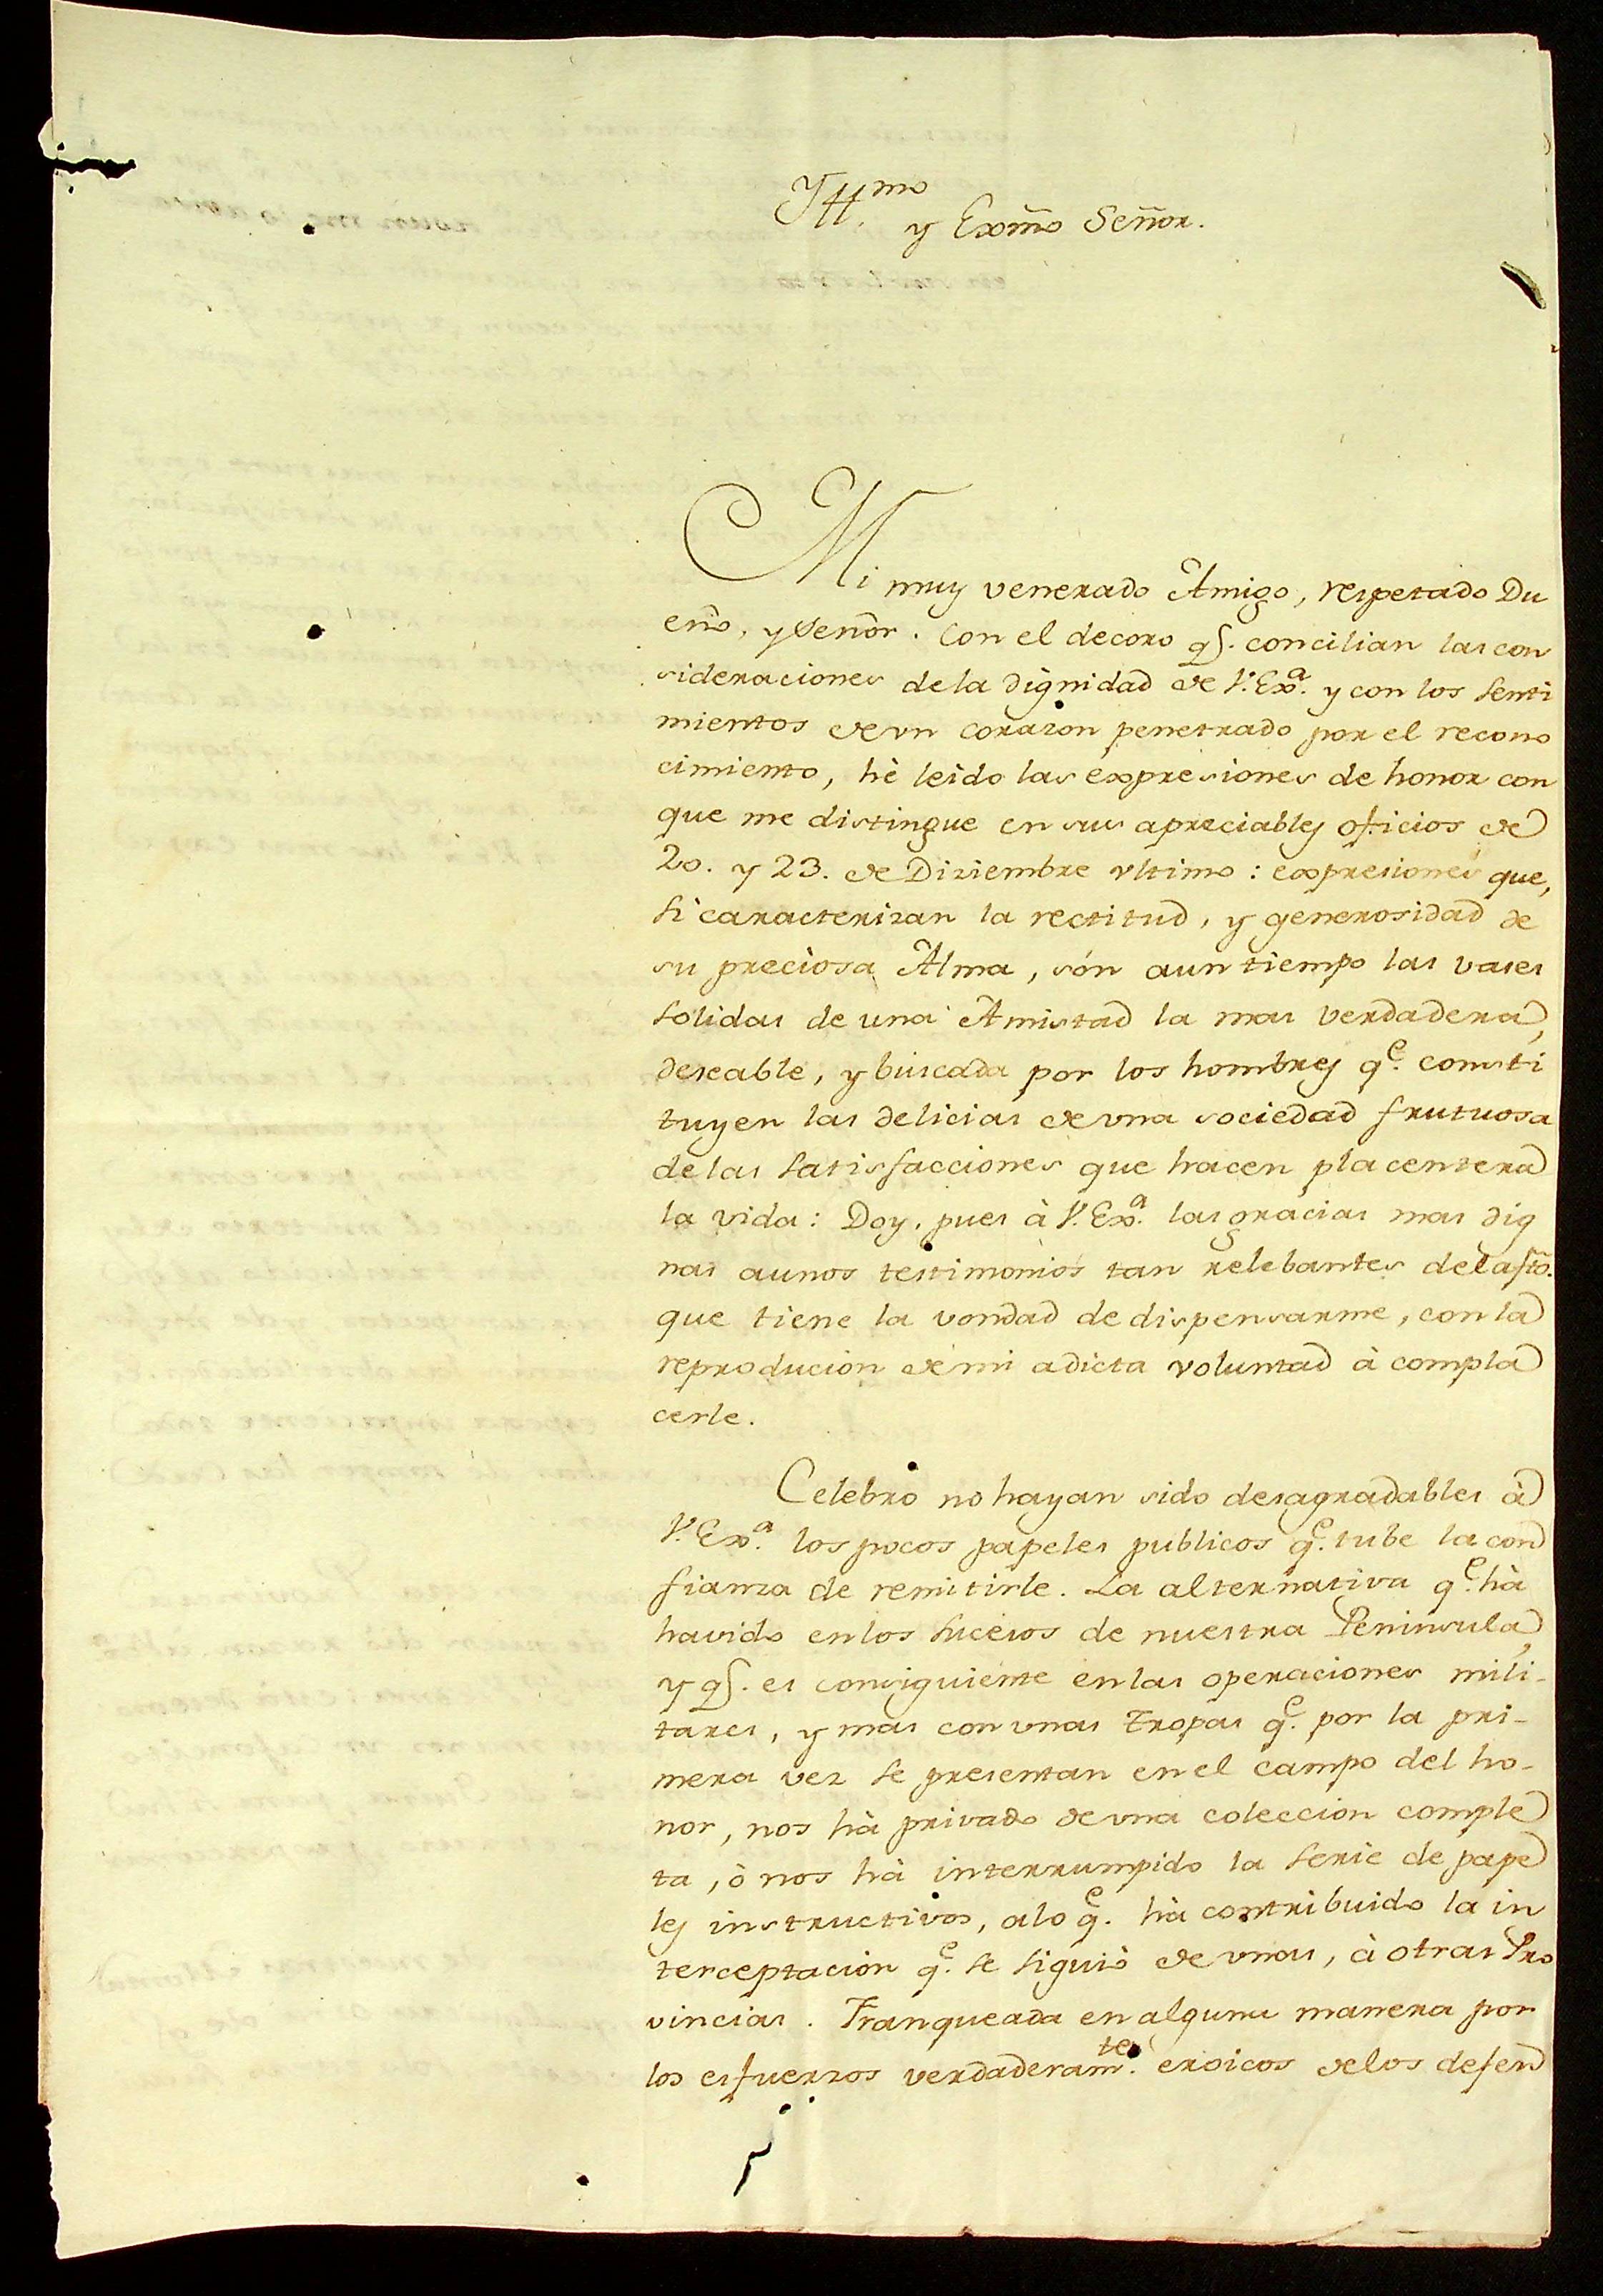 Yll.mo y Exmõ Señor.
Mi muy venerado Amigo, respetado Du
eño, y Señor. Con el decoro q.e concilian las con
sideraciones de la dignidad de V. Ex.a y con los senti
mientos de vn corazon penetrado por el recono
cimiento, hè leìdo las expresiones de honor con
que me distingue en sus apreciables oficios de
20. y 23. de Diziembre vltimo: expresiones que,
si caracterizan la rectitud, y generosidad de
su preciosa Alma, són aun tiempo las vases
solidas de una Amistad la mas verdadera,
deseable, y buscada por los hombres q.e consti
tuyen las delicias de vna sociedad frutuosa
de las satisfacciones que hacen placentera
la vida: Doy, pues à V. Ex.a las gracias mas dig
nas aunos testimonios tan relebantes del afto.
que tiene la vondad de dispensarme, con la
reproducion de mi adicta voluntad à compla
cerle.
Celebro no hayan sido desagradables à
V. Ex.a los pocos papeles publicos q.e tube la con
fianza de remitirle. La alternativa q.e hà
havido en los sucesos de nuestra Peninsula,
y q.e es consiguiente en las operaciones mili-
tares, y mas con vnas tropas q.e por la pri-
mera vez se presentan en el campo del ho-
nor, nos hà privado de vna coleccion comple
ta, ò nos hà interrumpido la serie de pape
les instructivos, alo q.e hà contribuido la in
terceptacion q.e se siguiò de vnas, à otras Pro
vincias. Franqueada en alguna manera por
los esfuerzos verdaderam.te eroicos de los defen